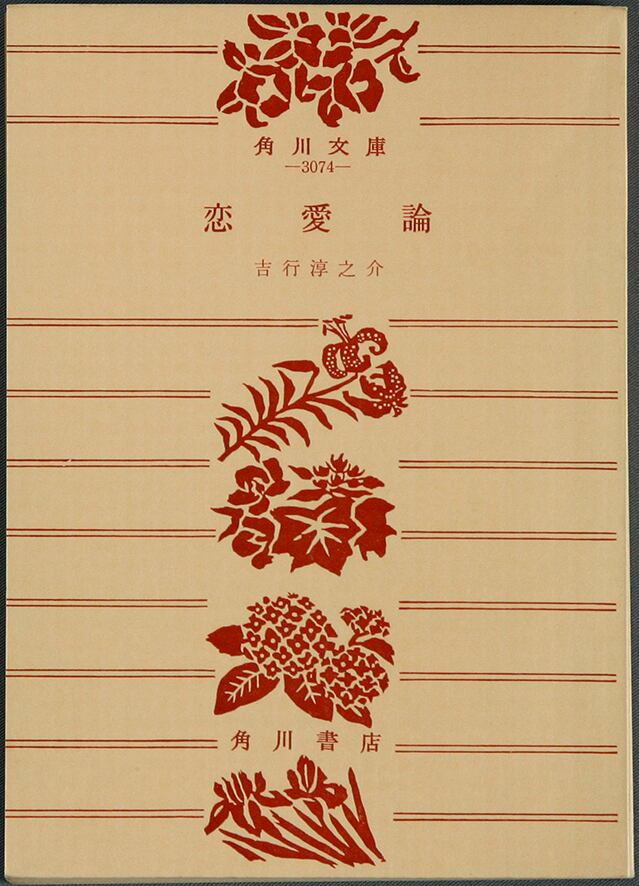 角川文庫
—3074—
恋愛論
吉行淳之介
角川書店